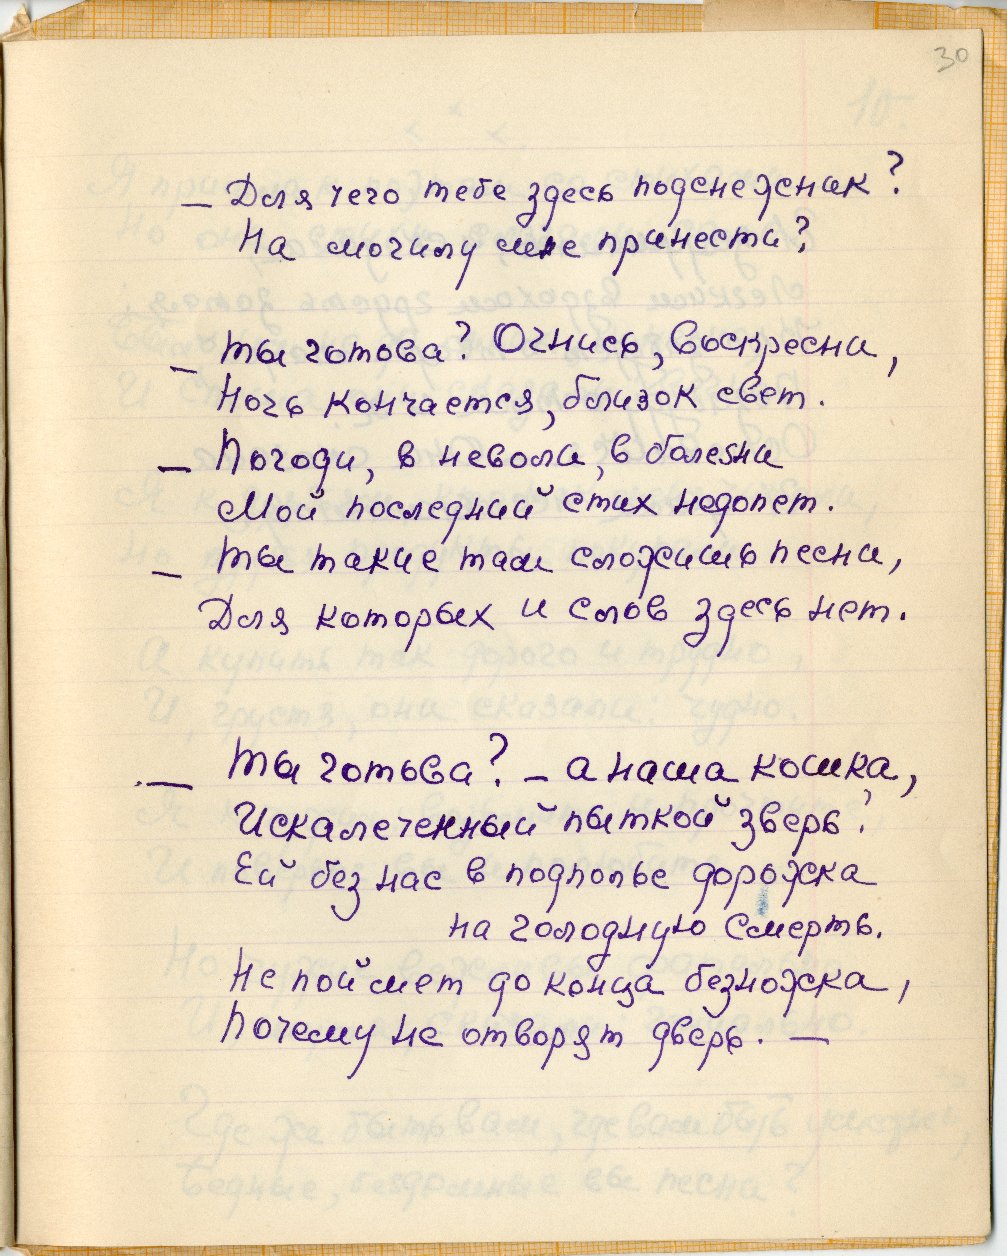 30
— Для чего тебе здесь подснежник?
На могилу мне принести?
— Ты готова? Очнись, воскресни,
Ночь кончается, близок свет.
— Погоди, в неволи, в болезни
Мой последний стих недопет.
— Ты такие там сложишь песни,
Для которых и слов здесь нет.
— Ты готова? — а наша кошка,
Искалеченный пыткой зверь?
Ей без нас в подполье дорожка
на голодную смерть.
Не поймет до конца безножка,
Почему не отворят дверь. —